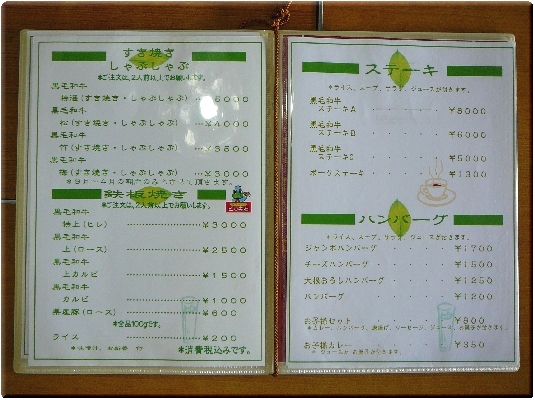 すき焼き
しゃぶしゃぶ
*ご注文は、2人前以上でお願いします。
黒毛和牛
(すき焼き・しゃぶしゃぶ) ¥6000
黒毛和牛
松(すき焼き・しゃぶしゃぶ) ¥4000
黒毛和牛
竹(すき焼き・しゃぶしゃぶ) ¥3500
黒毛和牛
梅(すき焼き・しゃぶしゃぶ) ¥3000
鉄板焼き
*ご注文は、2人前以上でお願いします。
黒毛和牛
特上(ヒレ) ¥3000
黒毛和牛
上(ロース) ¥2500
黒毛和牛
上カルビ ¥1500
黒毛和牛
カルビ ¥1000
県産豚(ロース) ¥600
*全品100gです。
ライス ¥200
*消費税込みです。
ステーキ
*ライス、スープ、サラダ、ジュースが付きます。
黒毛和牛
ステーキA ¥8000
黒毛和牛
ステーキB ¥6000
黒毛和牛
ステーキC ¥5000
ポークステーキ ¥1300
ハンバーグ
*ライス、スープ、サラダ、ジュースが付きます。
ジャンボハンバーグ ¥1700
チーズハンバーグ ¥1500
大根おろしハンバーグ ¥1250
ハンバーグ ¥1200
お子様セット ¥800
お子様カレー ¥350